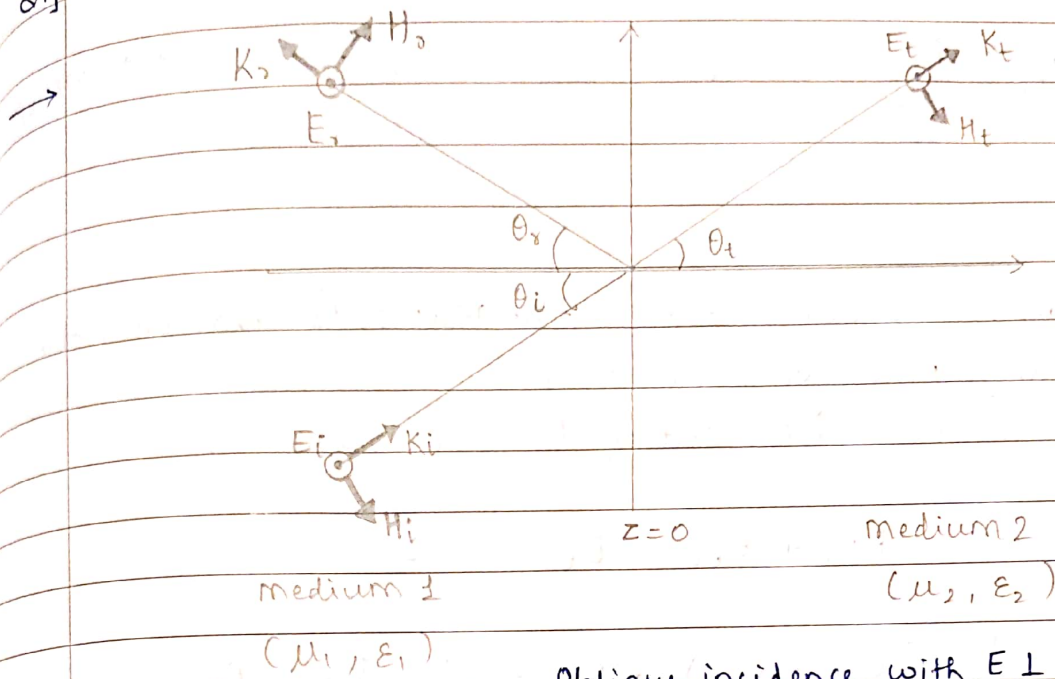 Hr
Kr
Er
Et
Kt
Ht
θr
θt
θi
Ei
Ki
Hi
z=0
medium 2
medium 1
(μ2, ε2)
(μ1, ε1)
Oblique incidence with E ⊥